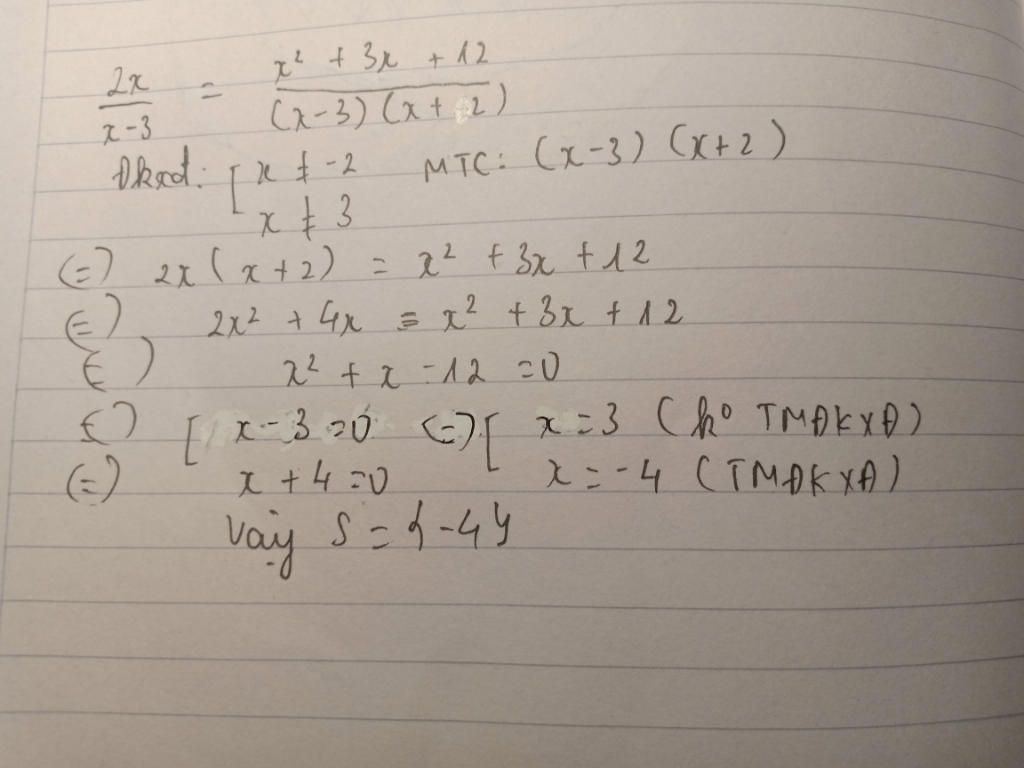 2x/(x-3) = (x² + 3x + 12)/((x-3)(x+2))
Đkxđ: [ x ≠ -2 MTC: (x-3) (x+2)
x ≠ 3
(=) 2x (x+2) = x² + 3x + 12
(=) 2x² + 4x = x² + 3x + 12
(=) x² + x - 12 = 0
(=) [ x - 3 = 0 (=) [ x = 3 (ko TMĐKXĐ)
(=) x + 4 = 0 x = -4 (TMĐKXĐ)
Vậy S = {-4}